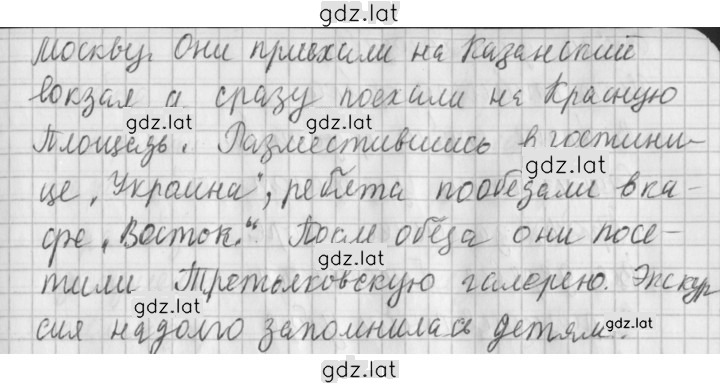 gdz.lat
Москву. Они приехали на Казанский
вокзал и сразу поехали на Красную
gdz.lat gdz.lat
Площадь. Разместившись в гостини-
gdz.lat
це „Украина", ребята пообедали в ка-
фе „Восток." После обеда они посе-
gdz.lat
тили Третьяковскую галерею. Экскур
gdz.lat
сия надолго запомнилась детям.
gdz.lat
gdz.lat